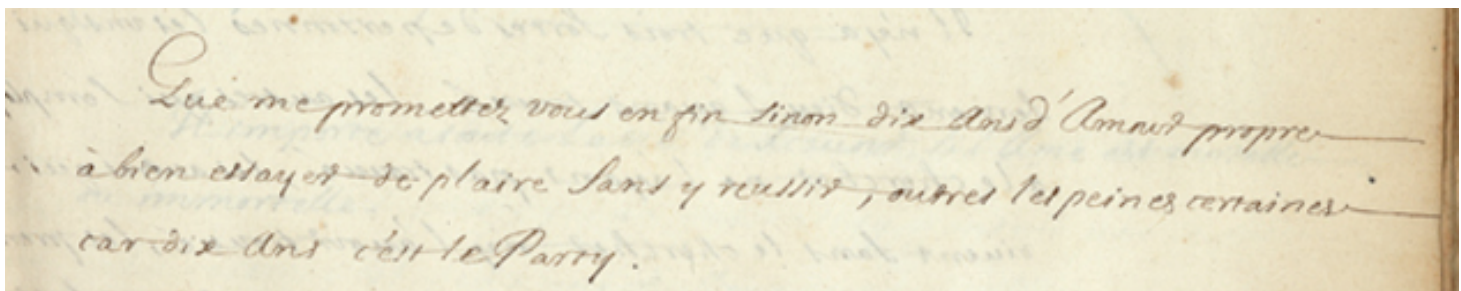 Que me promettez vous en fin sinon dix Ans d'Amour propre
à bien essayer de plaire Sans y reussir, outres les peines certaines
car dix Ans c'est le Party.